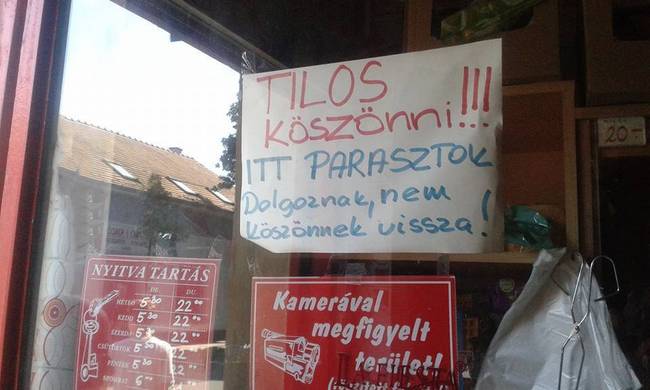 TILOS
KÖSZÖNNI!!!
ITT PARASZTOK
Dolgoznak, nem
köszönnek vissza!
20-
NYITVA TARTÁS
DE DU
HÉTFŐ 5 30 22 00
KEDD 5 30 22 00
SZERDA 5 30 22 00
CSÜTÖRTÖK 5 30 22 00
PÉNTEK 5 30 22 00
SZOMBAT 6 00 22 00
Kamerával
megfigyelt
terület!